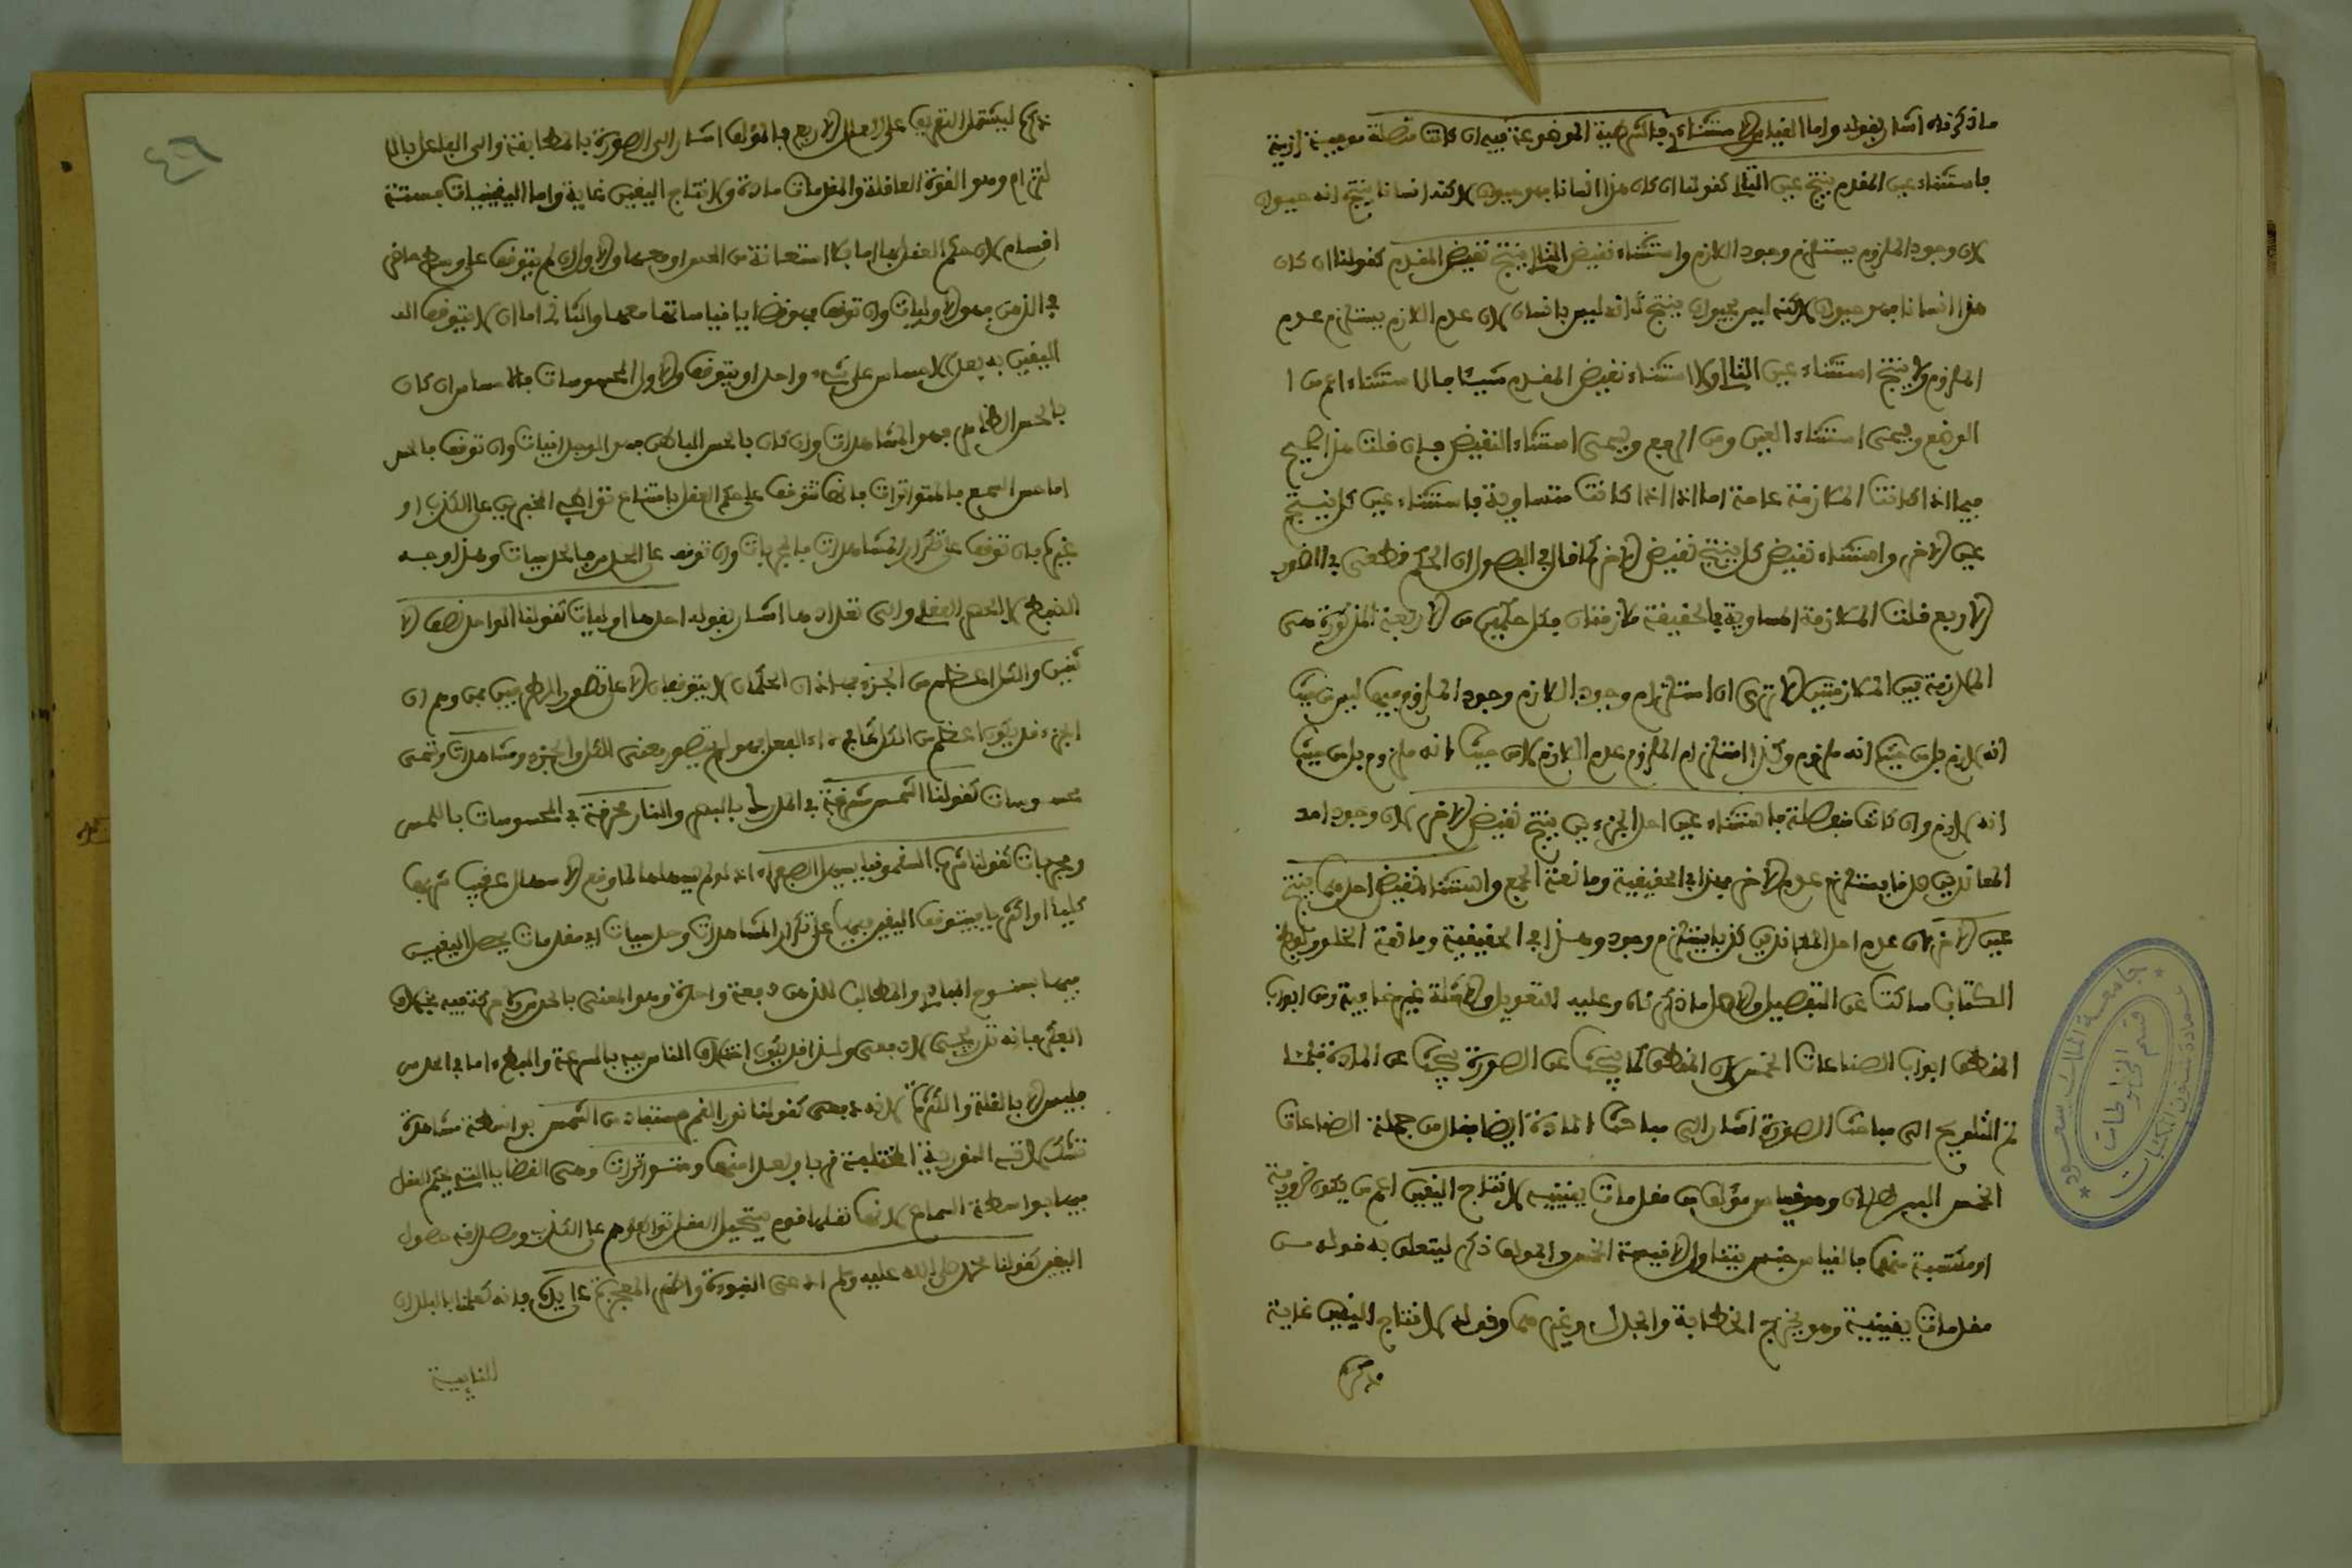 ما ذكرناه اشار بقوله واما القياس الاستثنائي فالشرطية الموضوعة فيه ان كانت متصلة موجبة لزومية
فاستثناء عين المقدم ينتج عين التالي كقولنا ان كان هذا انسانا فهو حيوان لاكنه انسانا ينتج انه حيوان
لان وجود الملزوم يستلزم وجود اللازم واستثناء نقيض التالي ينتج نقيض المقدم كقولنا ان كان
هذا انسانا فهو حيوان لاكنه ليس بحيوان ينتج انه ليس بانسان لان عدم اللازم يستلزم عدم
الملزوم ولا ينتج استثناء عين التالي ولا استثناء نقيض المقدم شيئا فالاستثناء اعم من
الوضع ويسمى استثناء العين ومن الرفع ويسمى استثناء النقيض فان قلت هذا صحيح
فيما اذا كانت الملازمة عامة اما اذا كانت متساوية فاستثناء عين كل ينتج
عين الاخر واستثناء نقيض كل ينتج نقيض الاخر كما قال في الفصول ان الحكم قطعي في الصور
الاربع قلت الملازمة المساوية في الحقيقة ملازمتان فكل حكمين من الاربعة المذكورة هي
الملازمة بين المتلازمتين الا ترى ان استلزام وجود اللازم وجود الملزوم فيهما ليس من حيث
انه لازم بل من حيث انه ملزوم وكذا استلزام الملزوم عدم اللازم لا من حيث انه ملزوم بل من حيث
انه لازم وان كانت منفصلة فاستثناء عين احد الجزءين ينتج نقيض الاخر لان وجود احد
المعاندين صدقا يستلزم عدم الاخر فهذا في الحقيقية ومانعة الجمع واستثناء نقيض احدهما ينتج
عين الاخر لان عدم احد المعاندين كذبا يستلزم وجوده وهذا في الحقيقية ومانعة الخلو ولفظ
الكتاب ساكت عن التفصيل والاصل ما ذكرناه وعليه التعويل والامثلة غير خافية ومن ابواب
المنطق ابواب الصناعات الخمس لان المنطقي كما يبحث عن الصورة يبحث عن المادة فلما
تم التلويح الى مباحث الصورة اشار الى مباحث المادة ايضا فقال من جملة الصناعات
الخمس البرهان وهو قياس مؤلف من مقدمات يقينية لانتاج اليقين اعم من يكون ضرورية
او مكتسبة منها فالقياس جنس يتناول الاقيسة الخمس والمؤلف ذكر ليتعلق به قوله من
مقدمات يقينية وهو يخرج الخطابة والجدل وغيرهما وقوله لانتاج اليقين غاية
ذكر
ذكر ليشتمل التعريف على العلل الاربع فالمؤلف اشار الى الصورة بالمطابقة والى الفاعل بالا
لتزام وهو القوة العاقلة والمقدمات مادة ولانتاج اليقين غاية واما اليقينيات فستة
اقسام لان حكم العقل بها اما بلا استعانة من الحس او معها والاول ان لم يتوقف على وسط حاضر
في الذهن فهو الاوليات وان توقف فهو قضايا قياساتها معها والثاني اما ان لا يتوقف
اليقين به بعد الاحساس على شيء واحد او يتوقف والاول المحسوسات فالاحساس ان كان
بالحس الظاهر فهو المشاهدات وان كان بالحس الباطن فهو الوجدانيات وان توقف بالحس
اما حس السمع فالمتواترات فانها تتوقف على حكم العقل بامتناع تواطئ المخبرين على الكذب او
غيره فان توقف على تكرار المشاهدات فالمجربات وان توقف على الحدس فالحدسيات وهذا وجه
الضبط لا الحصر العقلي والى تعدادها اشار بقوله احدها اوليات كقولنا الواحد نصف الا
ثنين والكل اعظم من الجزء فهذان الحكمان لا يتوقفان الا على تصور الطرفين فمن وهم ان
الجزء قد يكون اعظم من الكل كما في داء الفيل فهو لم يتصور معنى الكل والجزء ومشاهدات وتسمى
محسوسات كقولنا الشمس مشرقة في المدرك بالبصر والنار محرقة في المحسوسات باللمس
ومجربات كقولنا شرب السقمونيا يسهل الصفراء اذ لو لم يسهلها لما وقع الاسهال عقيب شربها
كليا او اكثريا فيتوقف اليقين فيها على تكرار المشاهدات وحدسيات اي مقدمات يحصل اليقين
فيها بسنوح المبادي والمطالب للذهن دفعة واحدة وهو المعني بالحدس ولا حركة فيه بخلاف
الفكر فانه تدريجي لا دفعي ولهذا قد يكون اختلاف الناس فيه بالسرعة والبطء اما في الحدس
فليس الا بالقلة والكثرة لانه دفعي كقولنا نور القمر مستفاد من الشمس بواسطة مشاهدة
تشكلاته النورية المختلفة قربا وبعدا منها ومتواترات وهي القضايا التي يحكم العقل
فيها بواسطة السماع لانها نقلها قوم يستحيل العقل تواطؤهم على الكذب ومصداقه حصول
اليقين كقولنا محمد صلى الله عليه وسلم ادعى النبوة واظهر المعجزة على يده فانه كعلمنا بالبلدان
النايية
جامعة الملك سعود
عمادة شئون المكتبات
قسم المخطوطات